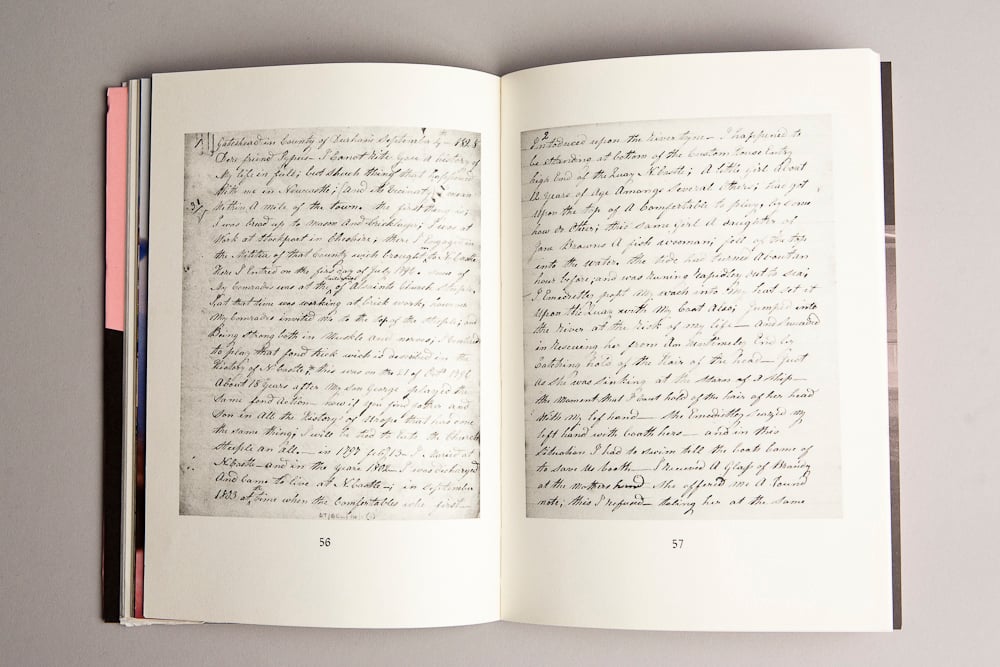 Gateshead in County of Durham September
Dere friend I Canot Rite you a history of
My life in full; but shuch thing that hapened
With me in Newcastle; And its vecinaty
Within A mile of the town. the first thing is;
I was bread up to mason And bricklayer; I was at
Work at Stockport in Cheshire, there I Engaged in
the Militia of that County wich brought to N.Castle,
Here I Entred on the first day of July 1796. some of
My Comrades was at the of Alsaints Church
that time was working at brick work,
My Comrades invited me to the top of the steeple; and
Being strong both in Muskle And nerves; I
to play that fond trick wich is described in the
History of N.Castle; this was on the of
About 18 years after My son George played the
Same fond Action— now if you find father and
Son in All the History of that has done
the same thing; I will be tied to eate the Church
Steeple an all.— in 1797 I Maried at
N.Castle— and in the yeare I was discharged
And Came to live at N.Castle—; in September
1803 at time when the Comfortables ware first
56
2
Introduced upon the River tyne— I happened to
be standing at bottom of the Custom house Entry
high End of the Quay N.Castle; A little girl About
years of Age Amongs Several Others; has got
Upon the top of A Comfortable to play, by some
how or Other; this same girl A daughter of
Jane Browns A fish woeman; fell of the top
into the water, the tide had turned About an
hour before; and was runing rapidley out to sea;
I Emedietley my wach into My hat set it
Upon the Quay with My Coat Also; Jumped into
the River at the Risk of my life— And
in Rescuing her from An Untimeley End by
Catching hold of the Hair of the head— Just
as she was Sinking at the Starn of A Ship—
the Moment that I hold of the hair of her head
With My lef hand— she Emedietley Seazed My
left hand with boath hers— and in this
Situation I had to swim till the boats Came of
to save Us boath— I received A Glass of Brandy
at the Mothers hand she offered me A Pound
note, this I refused— taking her at the same
57